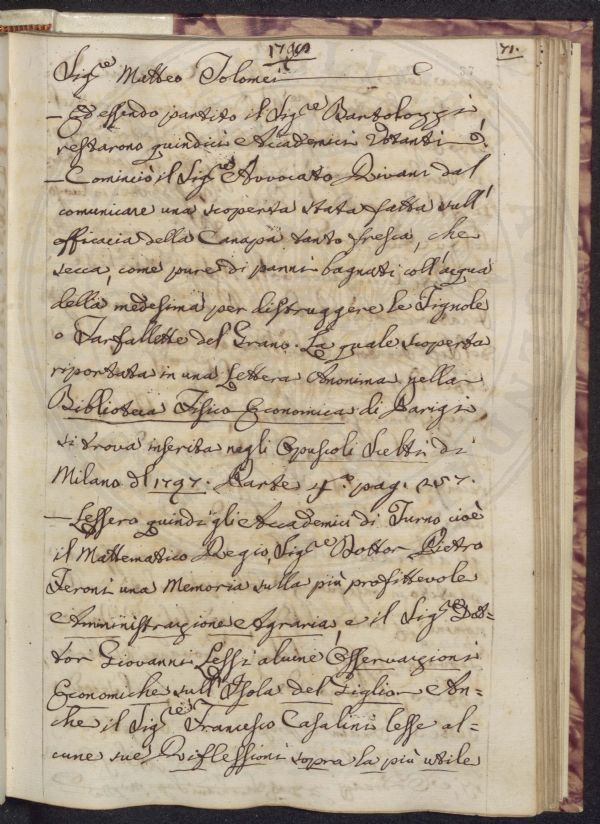 71.
Sig.re Matteo Tolomei
— Ed essendo partito il Sig.re Bartolozzi
restarono quindici Accademici Votanti
— Cominciò il Sig.re Avvocato Rivani dal
comunicare una scoperta stata fatta sull'
efficacia della Canapa tanto fresca, che
secca, come pure di panni bagnati coll'acqua
della medesima per distruggere le Tignole
o Farfallette del Grano. La quale scoperta
riportata in una Lettera Anonima nella
Biblioteca Fisico Economica di Parigi
si trova inserita negli Opuscoli Scelti di
Milano del 1797. Parte 4.a pag. 257.
— Lessero quindi gli Accademici di Turno cioè
il Mattematico Regio, Sig.re Dottor Pietro
Feroni una Memoria sulla più profittevole
Amministrazione Agraria, e il Sig.re Dot=
tor Giovanni Lessi alcune Osservazioni
Economiche sull'Isola del Giglio. An=
che il Sig.re Francesco Casalini lesse al=
cune sue Riflessioni sopra la più utile